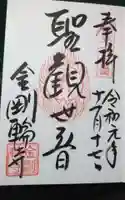 奉拝
令和元年
十一月十七日
聖観世音
金剛輪寺